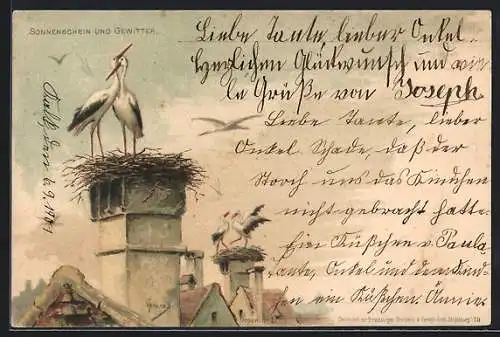 SONNENSCHEIN UND GEWITTER.
Liebe Tante, lieber Onkel.
Herzlichen Glückwunsch und vie
le Grüße von Joseph
Liebe Tante, lieber
Onkel. Schade, daß der
Storch uns das Kindchen
nicht gebracht hatte.
Ein Küßchen v. Paula
Tante, Onkel und dem Kind-
chen ein Küßchen. Ännie.
den 4.9.1901